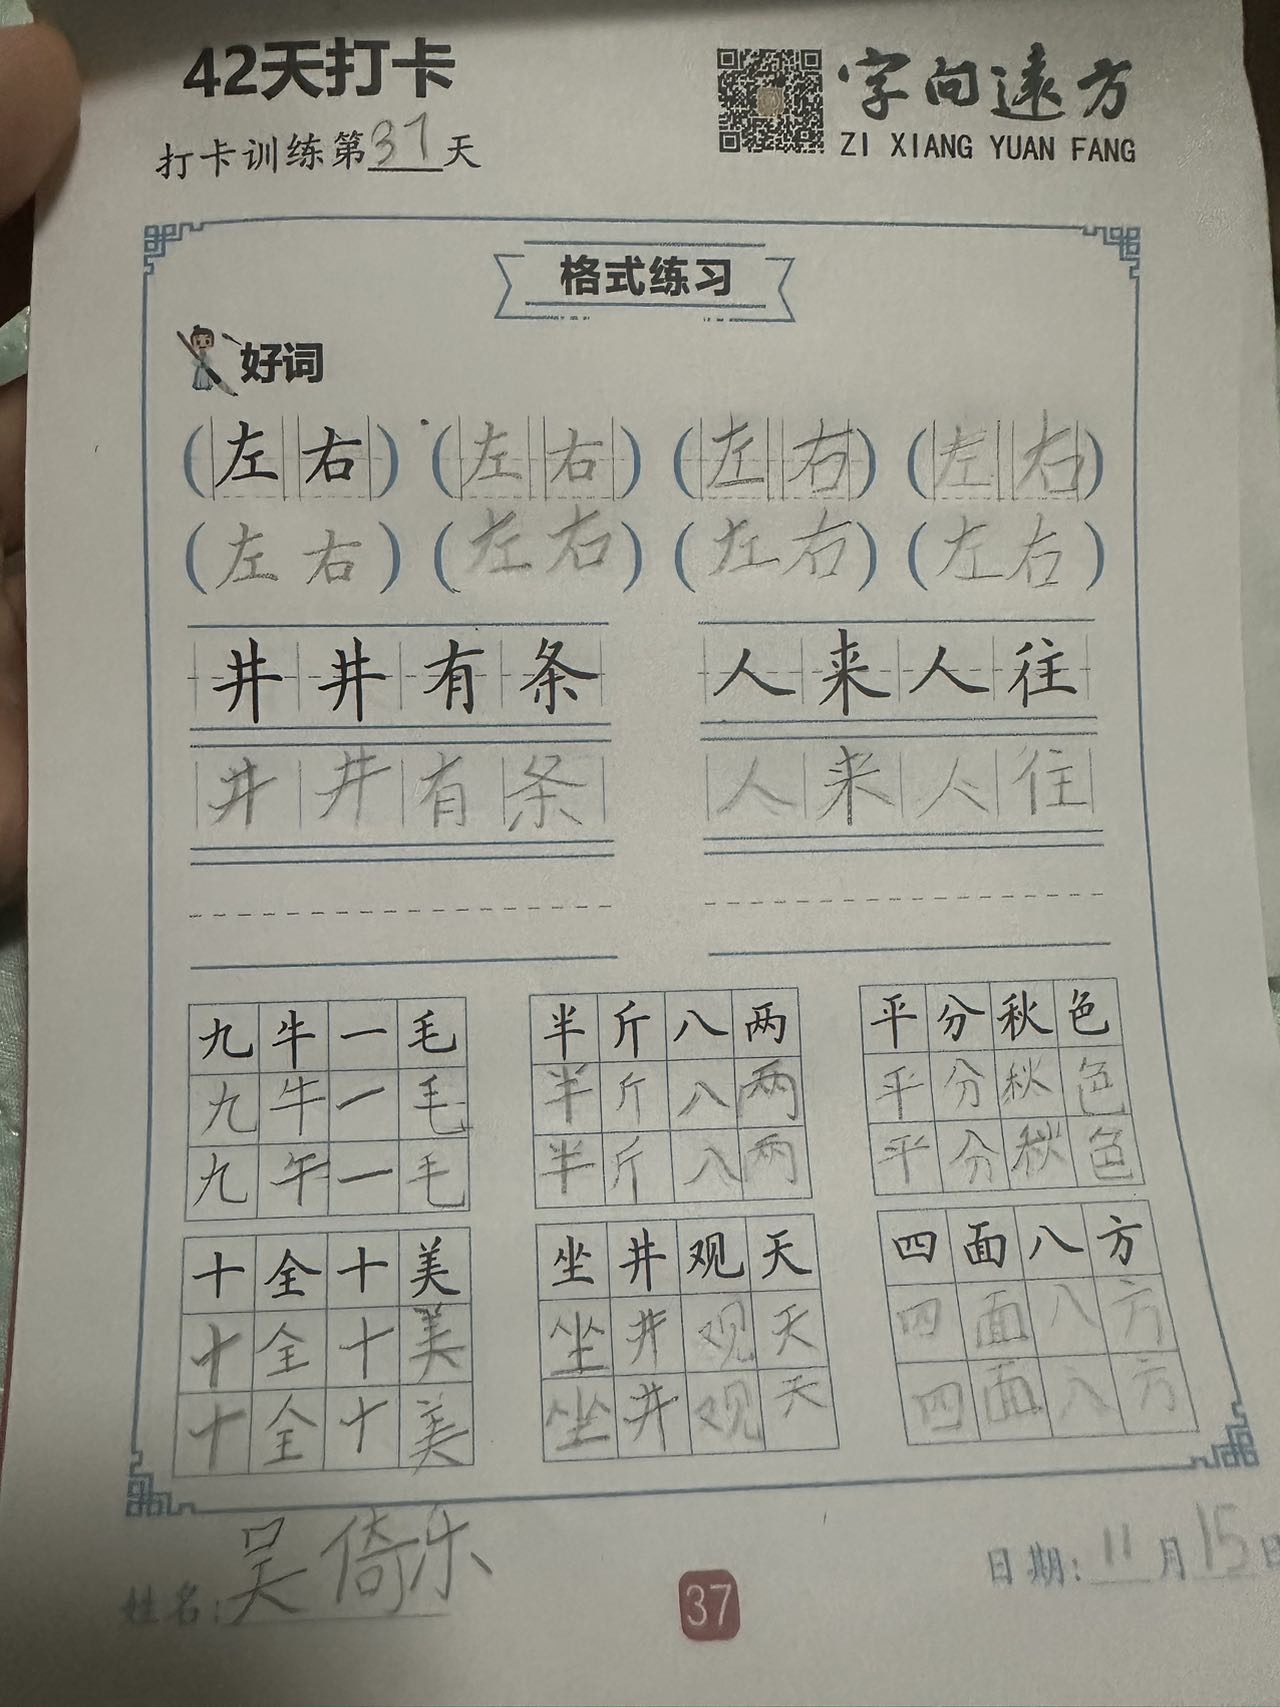 42天打卡
字向遠方
ZI XIANG YUAN FANG
打卡训练第37天
格式练习
好词
(左右) (左右) (左右) (左右)
(左右) (左右) (左右) (左右)
井井有条 人来人往
井井有条 人来人往
九牛一毛 半斤八两 平分秋色
九牛一毛 半斤八两 平分秋色
九午一毛 半斤八两 平分秋色
十全十美 坐井观天 四面八方
十全十美 坐井观天 四面八方
十全十美 坐井观天 四面八方
姓名:吴倚乐 日期:11月15日
37